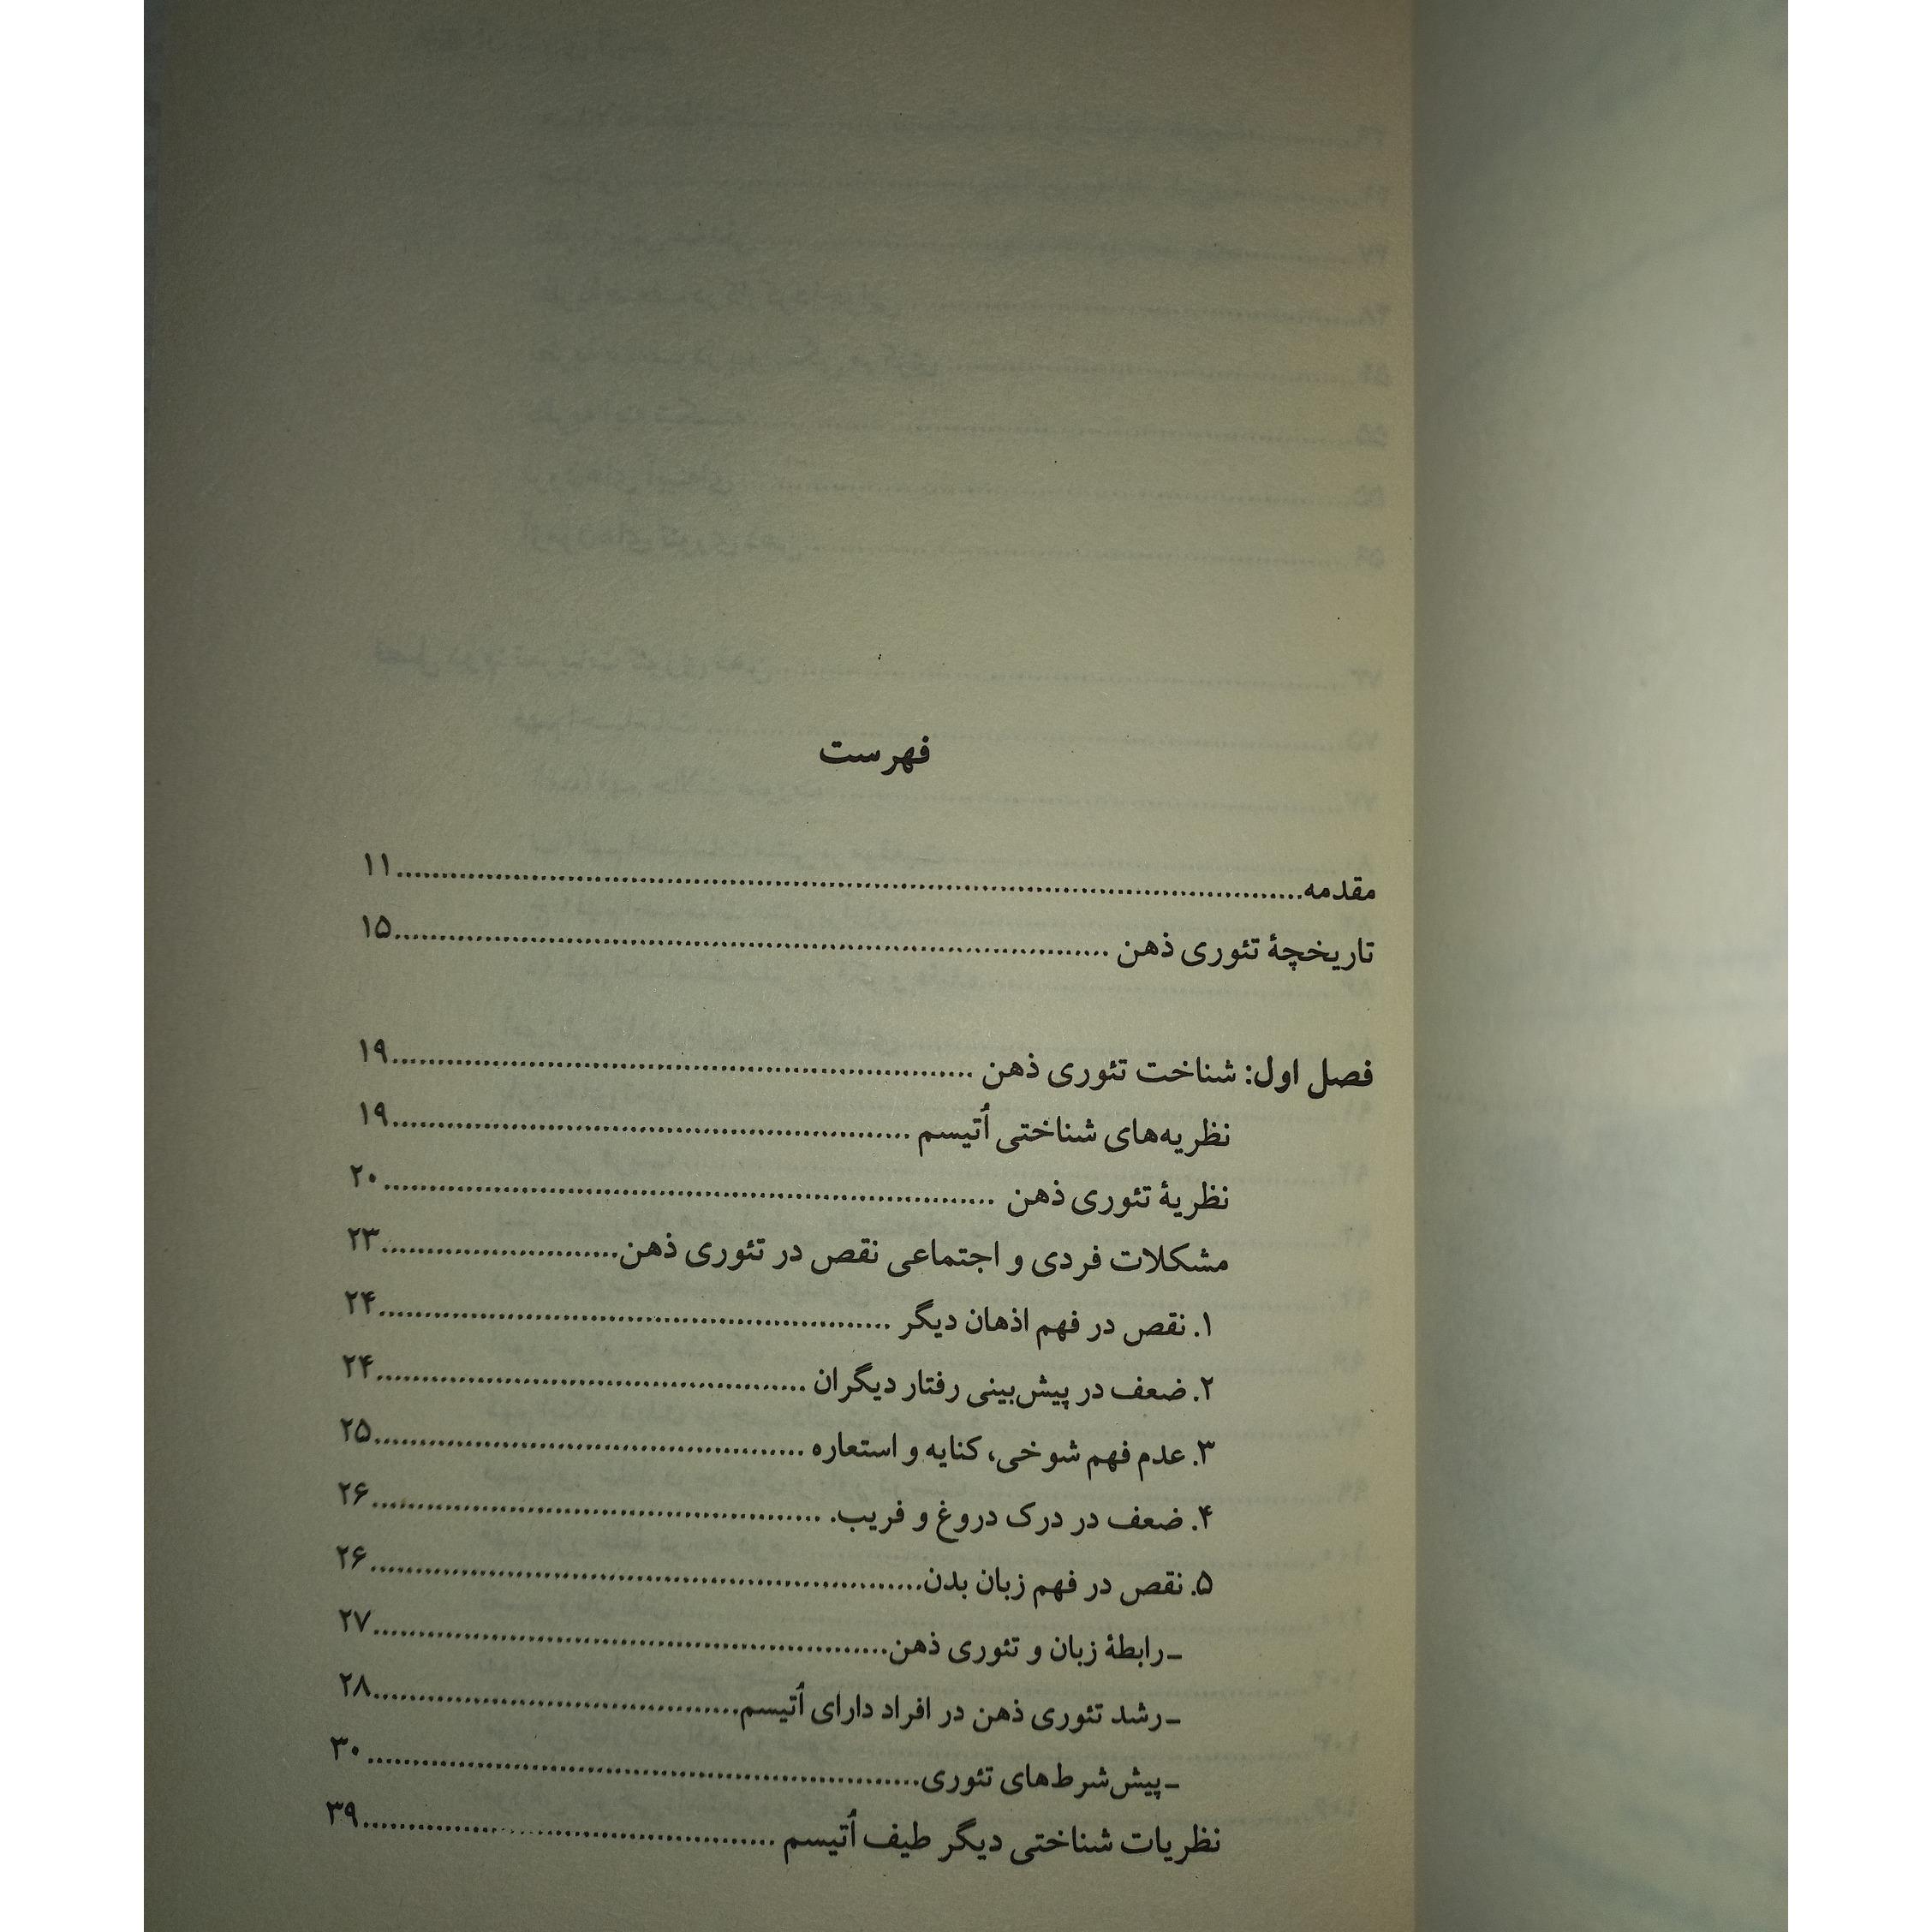 فهرست
مقدمه................................................................................۱۱
تاریخچهٔ تئوری ذهن ................................................................................۱۵
فصل اول: شناخت تئوری ذهن ................................................................................۱۹
نظریه‌های شناختی اُتیسم ................................................................................۱۹
نظریهٔ تئوری ذهن ................................................................................۲۰
مشکلات فردی و اجتماعی نقص در تئوری ذهن..........................۲۳
۱. نقص در فهم اذهان دیگر ................................................................۲۴
۲. ضعف در پیش‌بینی رفتار دیگران ................................................۲۴
۳. عدم فهم شوخی، کنایه و استعاره ................................................۲۵
۴. ضعف در درک دروغ و فریب. ................................................۲۶
۵. نقص در فهم زبان بدن................................................................۲۶
ـ رابطهٔ زبان و تئوری ذهن................................................................۲۷
ـ رشد تئوری ذهن در افراد دارای اُتیسم........................................۲۸
ـ پیش‌شرط‌های تئوری................................................................۳۰
نظریات شناختی دیگر طیف اُتیسم ................................................۳۹